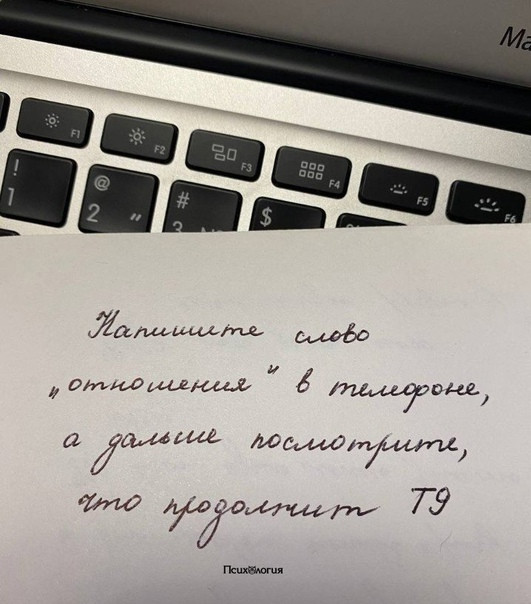 Ma
F1
F2
F3
F4
F5
F6
!
1
@
2 "
#
3
$
Напишите слово
„отношения“ в телефоне,
а дальше посмотрите,
что продолжит Т9
Психология